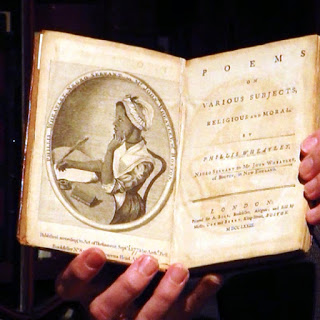 PHILLIS WHEATLEY, NEGRO SERVANT to Mr. JOHN WHEATLEY, of BOSTON.
Published according to Act of Parliament, Sept.
POEMS
ON
VARIOUS SUBJECTS,
RELIGIOUS AND MORAL.
BY
PHILLIS WHEATLEY,
NEGRO SERVANT to Mr. JOHN WHEATLEY,
of BOSTON, in NEW ENGLAND.
LONDON:
Printed for A. BELL, Bookseller, Aldgate; and sold by
Messrs. COX and BERRY, King-Street, BOSTON.
MDCCLXXIII.